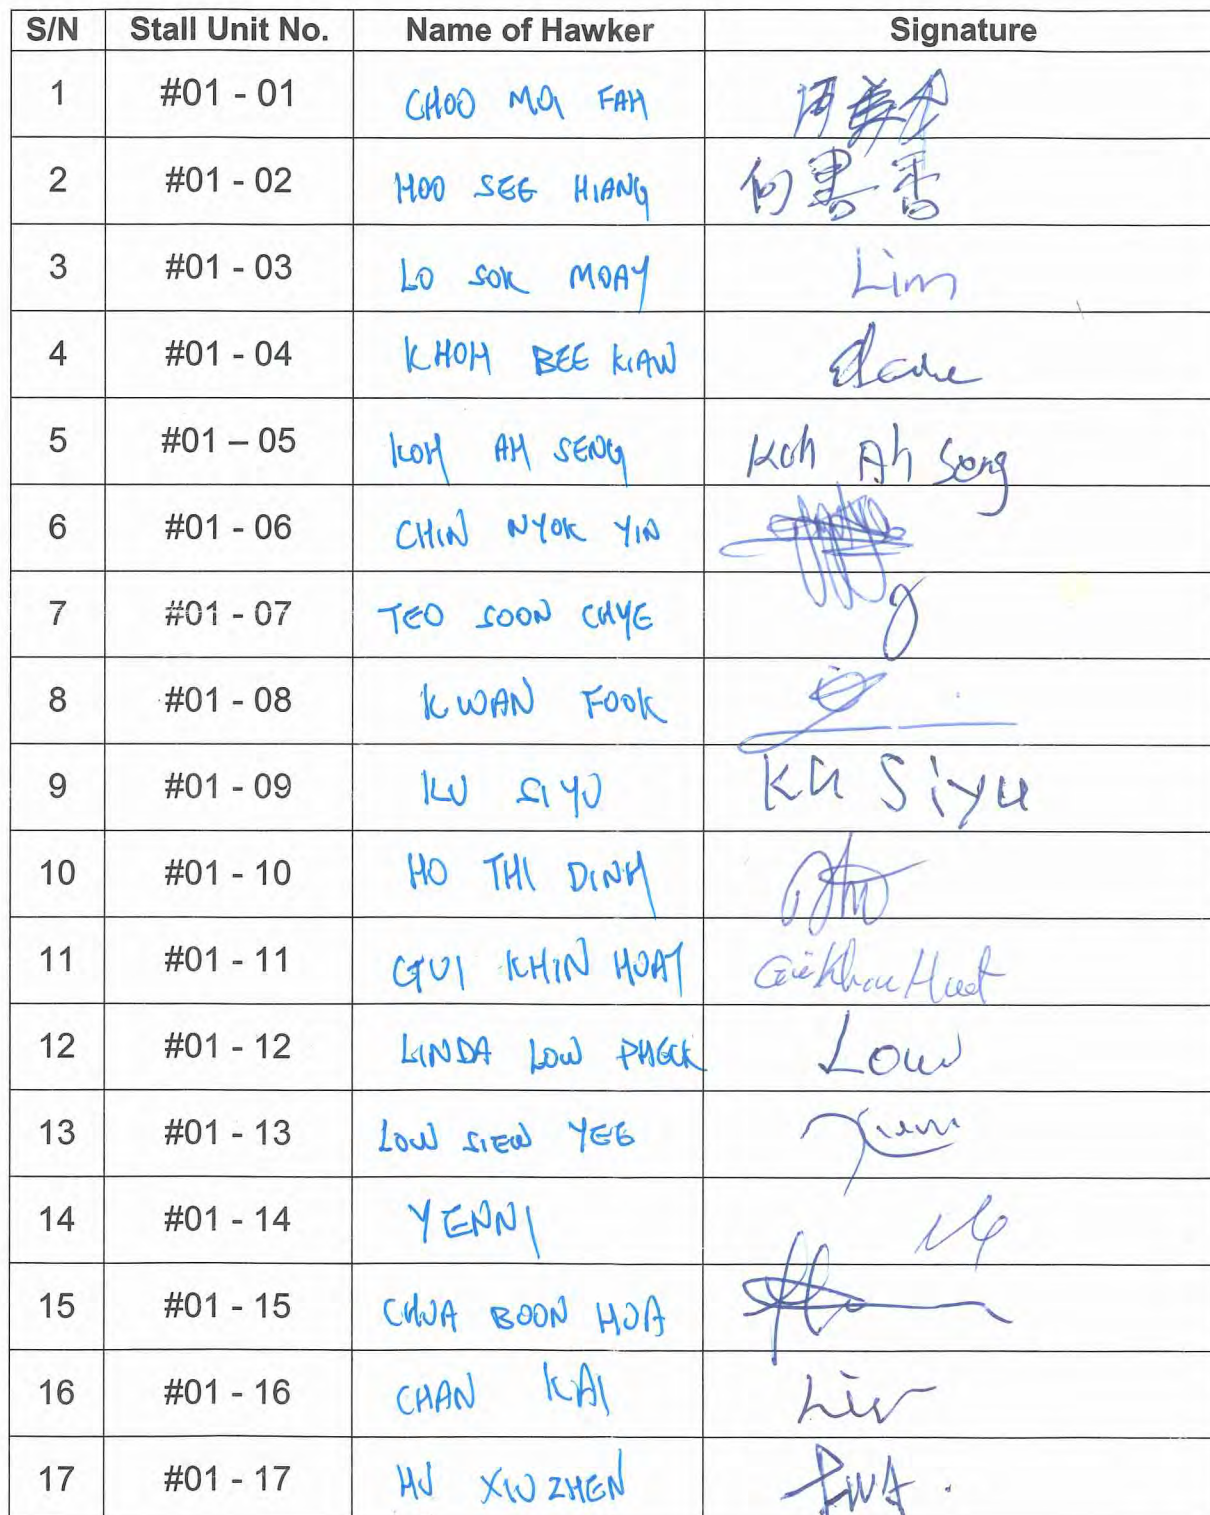 S/N Stall Unit No. Name of Hawker Signature
1 #01 - 01 CHOO MOI FAH
2 #01 - 02 HOO SEE HIANG 何書香
3 #01 - 03 LO SOK MOAY Lim
4 #01 - 04 KHOH BEE KIAW
5 #01 – 05 KOH AH SENG Koh Ah Seng
6 #01 - 06 CHIN NYOK YIN
7 #01 - 07 TEO SOON CHYE
8 #01 - 08 KWAN FOOK
9 #01 - 09 KU SI YU Ku Siyu
10 #01 - 10 HO THI DINH
11 #01 - 11 GUI KHIN HUAT
12 #01 - 12 LINDA LOW PHECK Low
13 #01 - 13 LOW SIEW YEE
14 #01 - 14 YENNI
15 #01 - 15 CHUA BOON HUA
16 #01 - 16 CHAN KAI
17 #01 - 17 HU XIU ZHEN